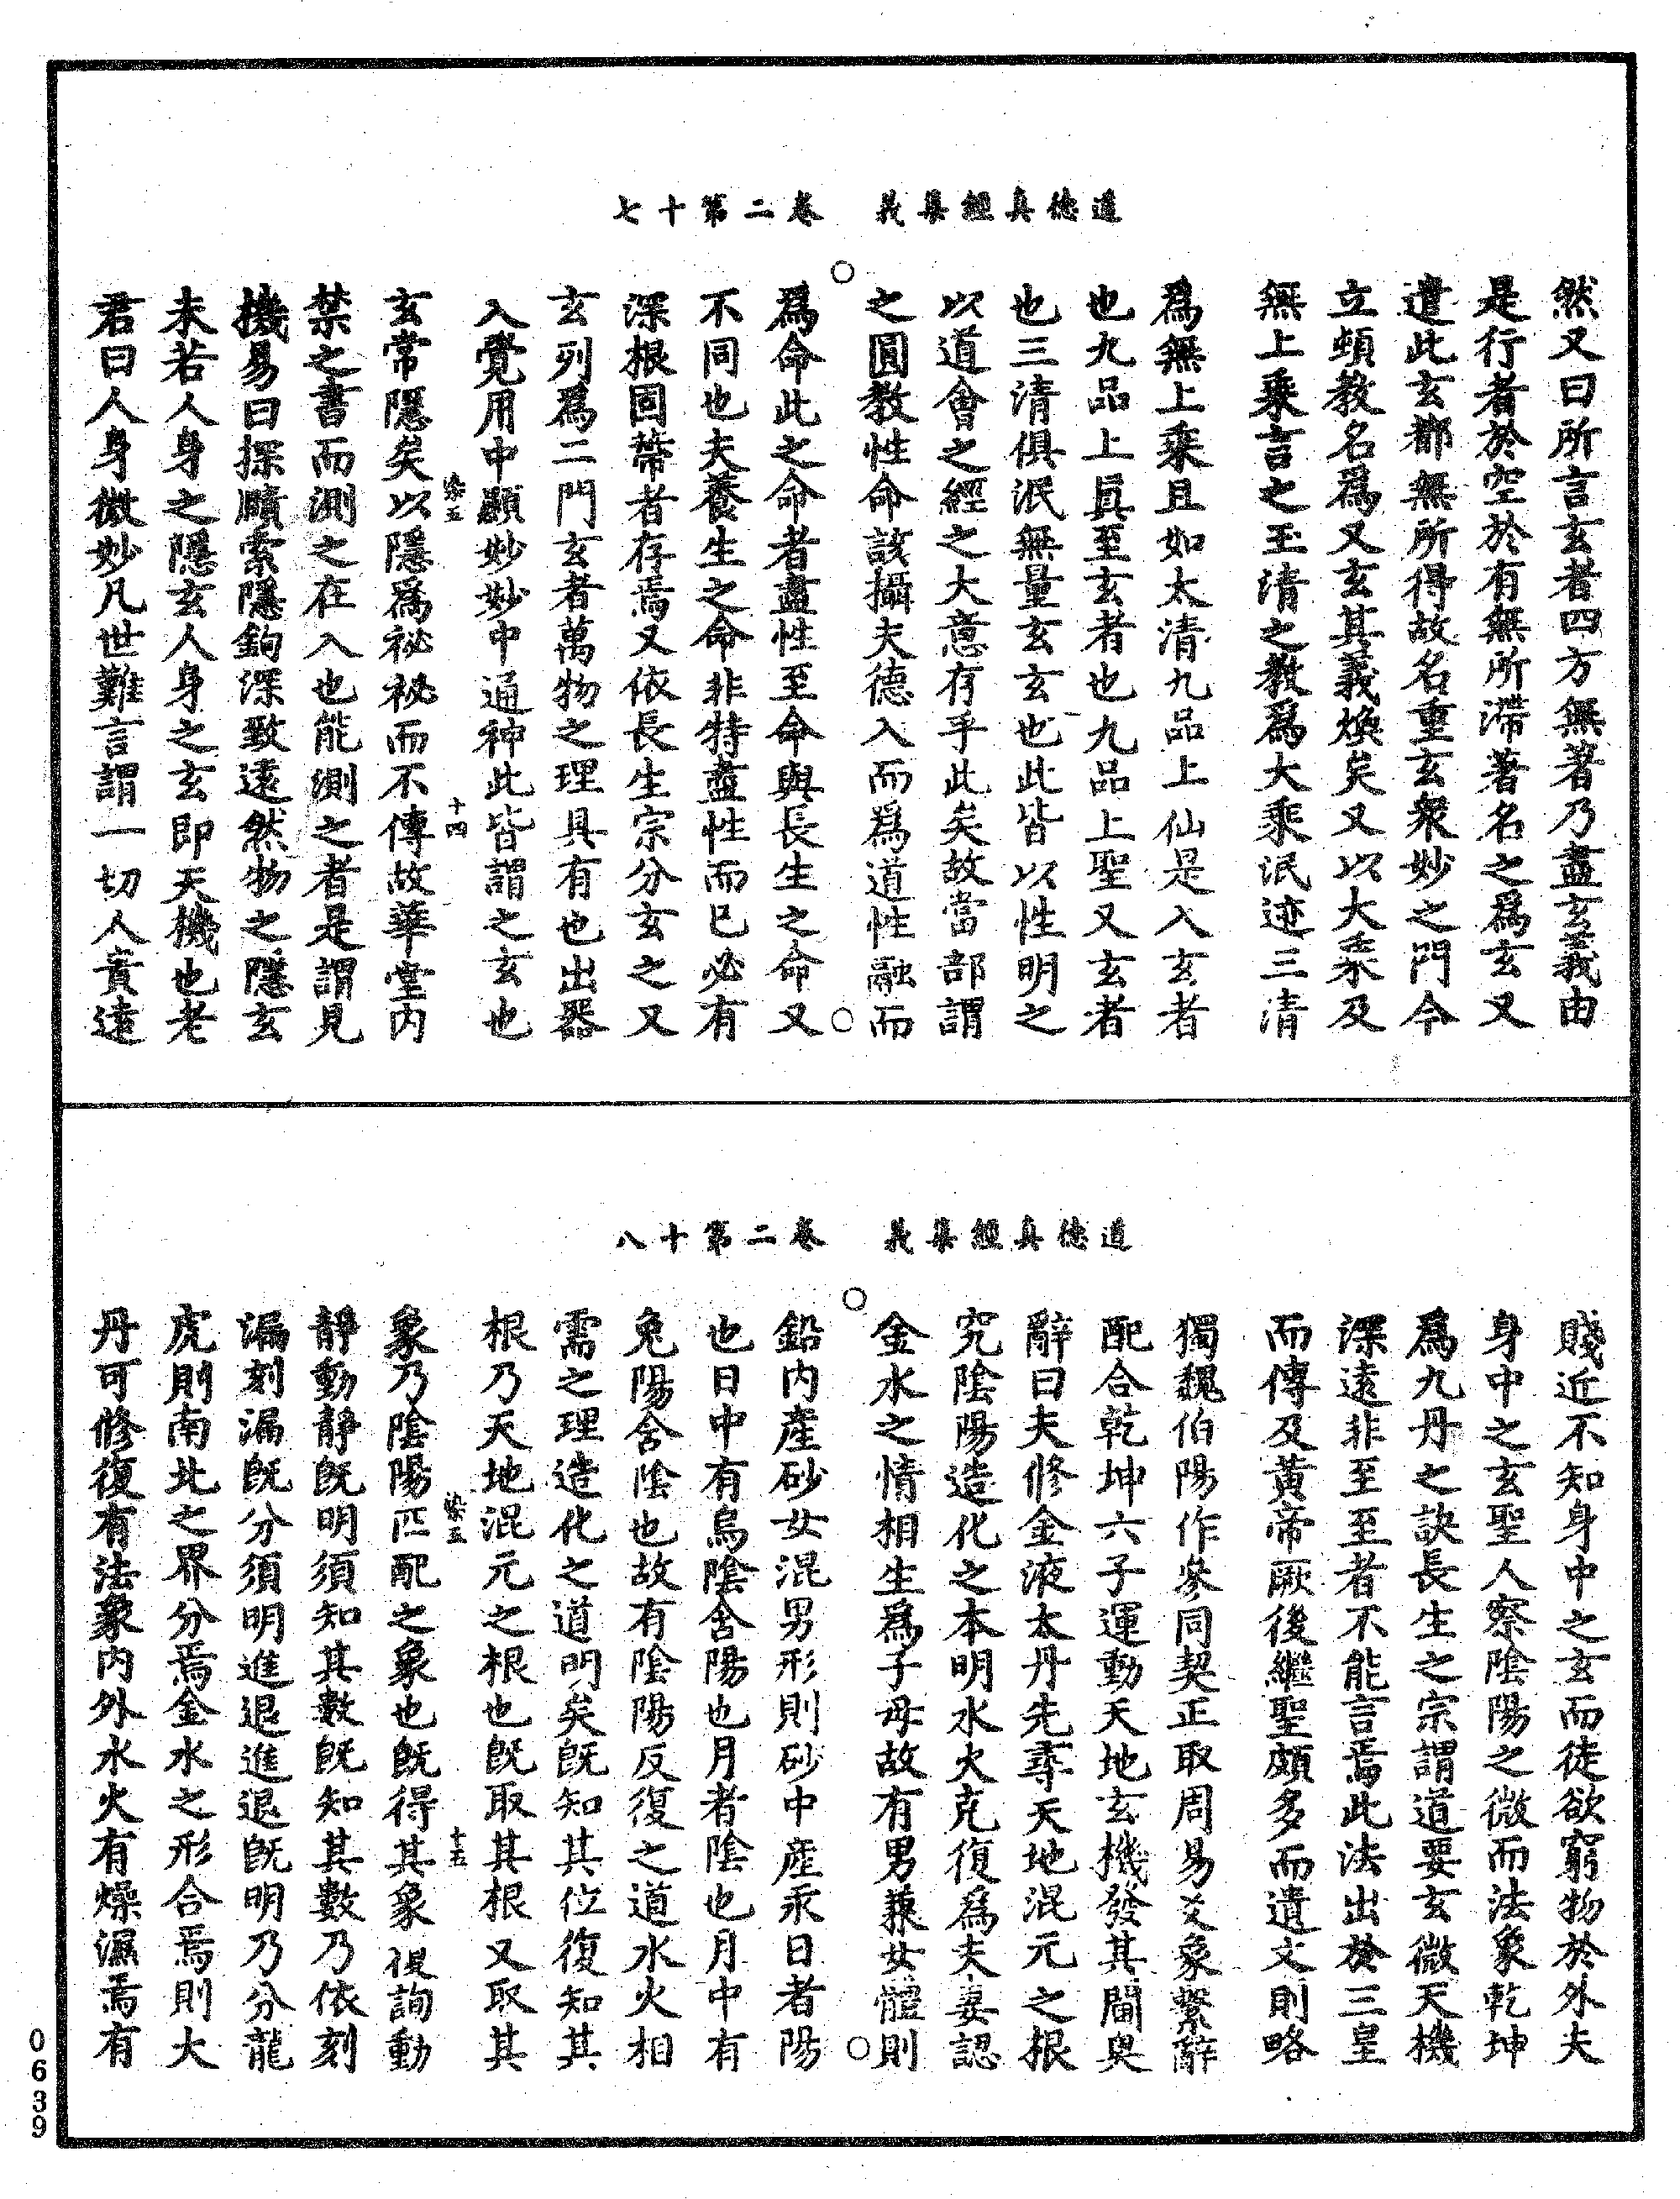 道德真經集義　卷二第十七
然又曰所言玄者四方無著乃盡玄義由
是行者於空於有無所滯著名之爲玄又
遣此玄都無所得故名重玄衆妙之門今
立頓教名爲又玄其義煥矣又以大乘及
無上乘言之玉清之教爲大乘泯迹三清
爲無上乘且如太清九品上仙是入玄者
也九品上真至玄者也九品上聖又玄者
也三清俱泯無量玄玄也此皆以性明之
以道會之經之大意有乎此矣故當部謂
之圓教性命該攝夫德入而爲道性融而
爲命此之命者盡性至命與長生之命又
不同也夫養生之命非特盡性而已必有
深根固蔕者存焉又依長生宗分玄之又
玄列爲二門玄者萬物之理具有也出器
入覺用中顯妙妙中通神此皆謂之玄也
染五　十四
玄常隱矣以隱爲祕祕而不傳故華堂內
禁之書而測之在入也能測之者是謂見
機易曰探賾索隱鉤深致遠然物之隱玄
未若人身之隱玄人身之玄即天機也老
君曰人身微妙凡世難言謂一切人貴遠
道德真經集義　卷二第十八
賤近不知身中之玄而徒欲窮物於外夫
身中之玄聖人察陰陽之微而法象乾坤
爲九丹之訣長生之宗謂道要玄微天機
深遠非至至者不能言焉此法出於三皇
而傳及黃帝厥後繼聖頗多而遺文則略
獨魏伯陽作參同契正取周易爻象繫辭
配合乾坤六子運動天地玄機發其閫奧
辭曰夫修金液太丹先尋天地混元之根
究陰陽造化之本明水火克復爲夫妻認
金水之情相生爲子母故有男兼女體則
鉛內產砂女混男形則砂中產汞日者陽
也日中有烏陰含陽也月者陰也月中有
兔陽含陰也故有陰陽反復之道水火相
需之理造化之道明矣旣知其位復知其
根乃天地混元之根也旣取其根又取其
染五　十五
象乃陰陽匹配之象也旣得其象俔詢動
靜動靜旣明須知其數旣知其數乃依刻
漏刻漏旣分須明進退進退旣明乃分龍
虎則南北之界分焉金水之形合焉則大
丹可修復有法象內外水火有燥濕焉有
0639